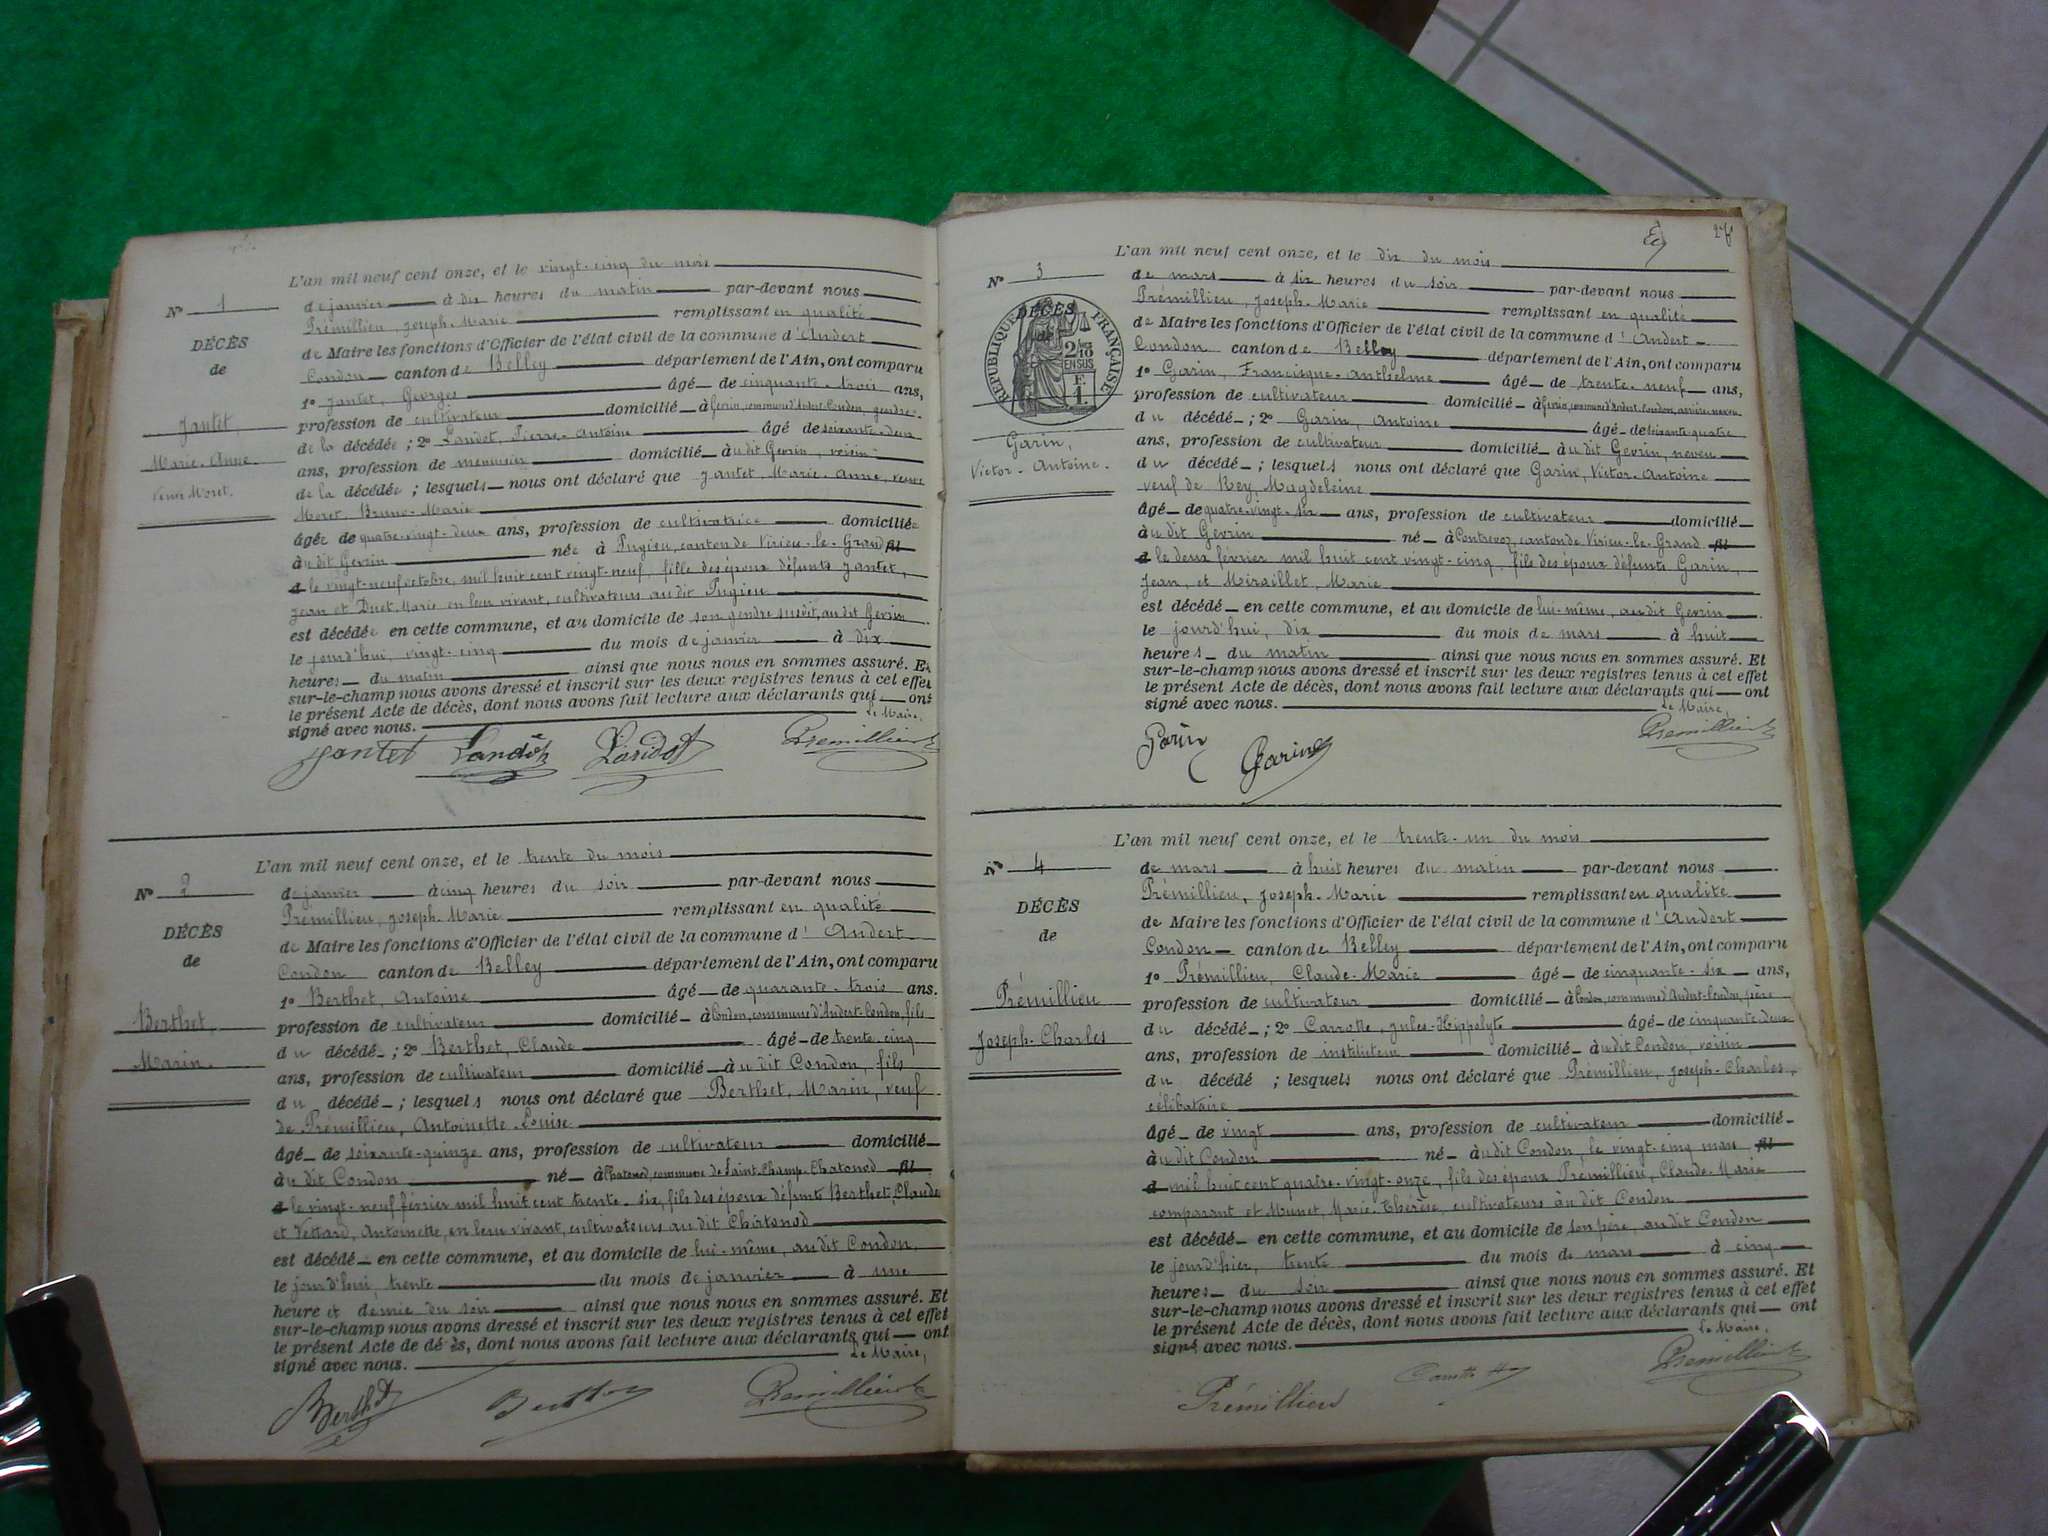 L'an mil neuf cent onze, et le vingt-cinq du mois
N° 1
de janvier à dix heures du matin par-devant nous
Prémillieu, Joseph-Marie remplissant en qualité
DÉCÈS
de Maire les fonctions d'Officier de l'état civil de la commune d'Andert
de
Condon canton de Belley département de l'Ain, ont comparu
1° Jantet, Georges âgé de cinquante-trois ans,
Jantet,
profession de cultivateur domicilié à Gevrin, commune d'Andert-Condon, gendre
de la décédée ; 2° Landot, Pierre-Antoine âgé de soixante-deux
Marie-Anne
ans, profession de menuisier domicilié audit Gevrin, voisin
Veuve Moret.
de la décédée ; lesquels nous ont déclaré que Jantet, Marie-Anne, veuve
Moret, Bruno-Marie
âgée de quatre-vingt-deux ans, profession de cultivatrice domiciliée
audit Gevrin née à Pugieu, canton de Virieu-le-Grand fil
d le vingt-neuf octobre, mil huit cent vingt-neuf, fille des époux défunts Jantet,
Jean et Duet, Marie en leur vivant, cultivateurs audit Pugieu
est décédée en cette commune, et au domicile de son gendre susdit, audit Gevrin
le jourd'hui, vingt-cinq du mois de janvier à dix
heures du matin ainsi que nous nous en sommes assuré. Et
sur-le-champ nous avons dressé et inscrit sur les deux registres tenus à cet effet
le présent Acte de décès, dont nous avons fait lecture aux déclarants qui ont
signé avec nous. Le Maire,
Jantet Landot Landot Premillieu
L'an mil neuf cent onze, et le trente du mois
N° 2
de janvier à cinq heures du soir par-devant nous
Prémillieu, Joseph-Marie remplissant en qualité
DÉCÈS
de Maire les fonctions d'Officier de l'état civil de la commune d'Andert
de
Condon canton de Belley département de l'Ain, ont comparu
1° Berthet, Antoine âgé de quarante-trois ans.
Berthet,
profession de cultivateur domicilié à Condon, commune d'Andert-Condon, fils
du décédé ; 2° Berthet, Claude âgé de trente-cinq
Marin.
ans, profession de cultivateur domicilié audit Condon, fils
du décédé ; lesquels nous ont déclaré que Berthet, Marin, veuf
de Prémillieu, Antoinette-Louise
âgé de soixante-quinze ans, profession de cultivateur domicilié
audit Condon né à Chatonod, commune de Saint-Champ-Chatonod fil
d le vingt-neuf février mil huit cent trente-six, fils des époux défunts Berthet, Claude
et Vettard, Antoinette, en leur vivant, cultivateurs audit Chatonod
est décédé en cette commune, et au domicile de lui-même, audit Condon,
le jourd'hui, trente du mois de janvier à une
heure et demie du soir ainsi que nous nous en sommes assuré. Et
sur-le-champ nous avons dressé et inscrit sur les deux registres tenus à cet effet
le présent Acte de décès, dont nous avons fait lecture aux déclarants qui ont
signé avec nous. Le Maire,
Berthet Berthet Premillieu
27
L'an mil neuf cent onze, et le dix du mois
N° 3
de mars à six heures du soir par-devant nous
Prémillieu, Joseph-Marie remplissant en qualité
DÉCÈS
de
RÉPUBLIQUE FRANÇAISE
2/10 EN SUS
F. 1.
de Maire les fonctions d'Officier de l'état civil de la commune d'Andert
Condon canton de Belley département de l'Ain, ont comparu
1° Garin, Francisque-Anthelme âgé de trente-neuf ans,
profession de cultivateur domicilié à Gevrin, commune d'Andert-Condon, arrière-neveu
du décédé ; 2° Garin, Antoine âgé de soixante-quatre
Garin,
ans, profession de cultivateur domicilié audit Gevrin, neveu
Victor-Antoine.
du décédé ; lesquels nous ont déclaré que Garin, Victor-Antoine
veuf de Rey, Magdeleine
âgé de quatre-vingt-six ans, profession de cultivateur domicilié
audit Gevrin né à Contrevoz, canton de Virieu-le-Grand fil
d le deux février mil huit cent vingt-cinq, fils des époux défunts Garin,
Jean, et Miraillet, Marie
est décédé en cette commune, et au domicile de lui-même, audit Gevrin
le jourd'hui, dix du mois de mars à huit
heures du matin ainsi que nous nous en sommes assuré. Et
sur-le-champ nous avons dressé et inscrit sur les deux registres tenus à cet effet
le présent Acte de décès, dont nous avons fait lecture aux déclarants qui ont
signé avec nous. Le Maire,
Garin Garin Premillieu
L'an mil neuf cent onze, et le trente-un du mois
N° 4
de mars à huit heures du matin par-devant nous
Prémillieu, Joseph-Marie remplissant en qualité
DÉCÈS
de Maire les fonctions d'Officier de l'état civil de la commune d'Andert
de
Condon canton de Belley département de l'Ain, ont comparu
1° Prémillieu, Claude-Marie âgé de cinquante-six ans,
Prémillieu
profession de cultivateur domicilié à Condon, commune d'Andert-Condon, père
du décédé ; 2° Carrotte, Jules-Hippolyte âgé de cinquante-deux
Joseph-Charles
ans, profession de instituteur domicilié audit Condon, voisin
du décédé ; lesquels nous ont déclaré que Prémillieu, Joseph-Charles,
célibataire
âgé de vingt ans, profession de cultivateur domicilié
audit Condon né audit Condon, le vingt-cinq mars fil
d mil huit cent quatre-vingt-onze, fils des époux Prémillieu, Claude-Marie
comparant et Munet, Marie-Thérèse, cultivateurs audit Condon
est décédé en cette commune, et au domicile de son père, audit Condon
le jourd'hier, trente du mois de mars à cinq
heures du soir ainsi que nous nous en sommes assuré. Et
sur-le-champ nous avons dressé et inscrit sur les deux registres tenus à cet effet
le présent Acte de décès, dont nous avons fait lecture aux déclarants qui ont
signé avec nous. Le Maire,
Prémillieu Premillieu